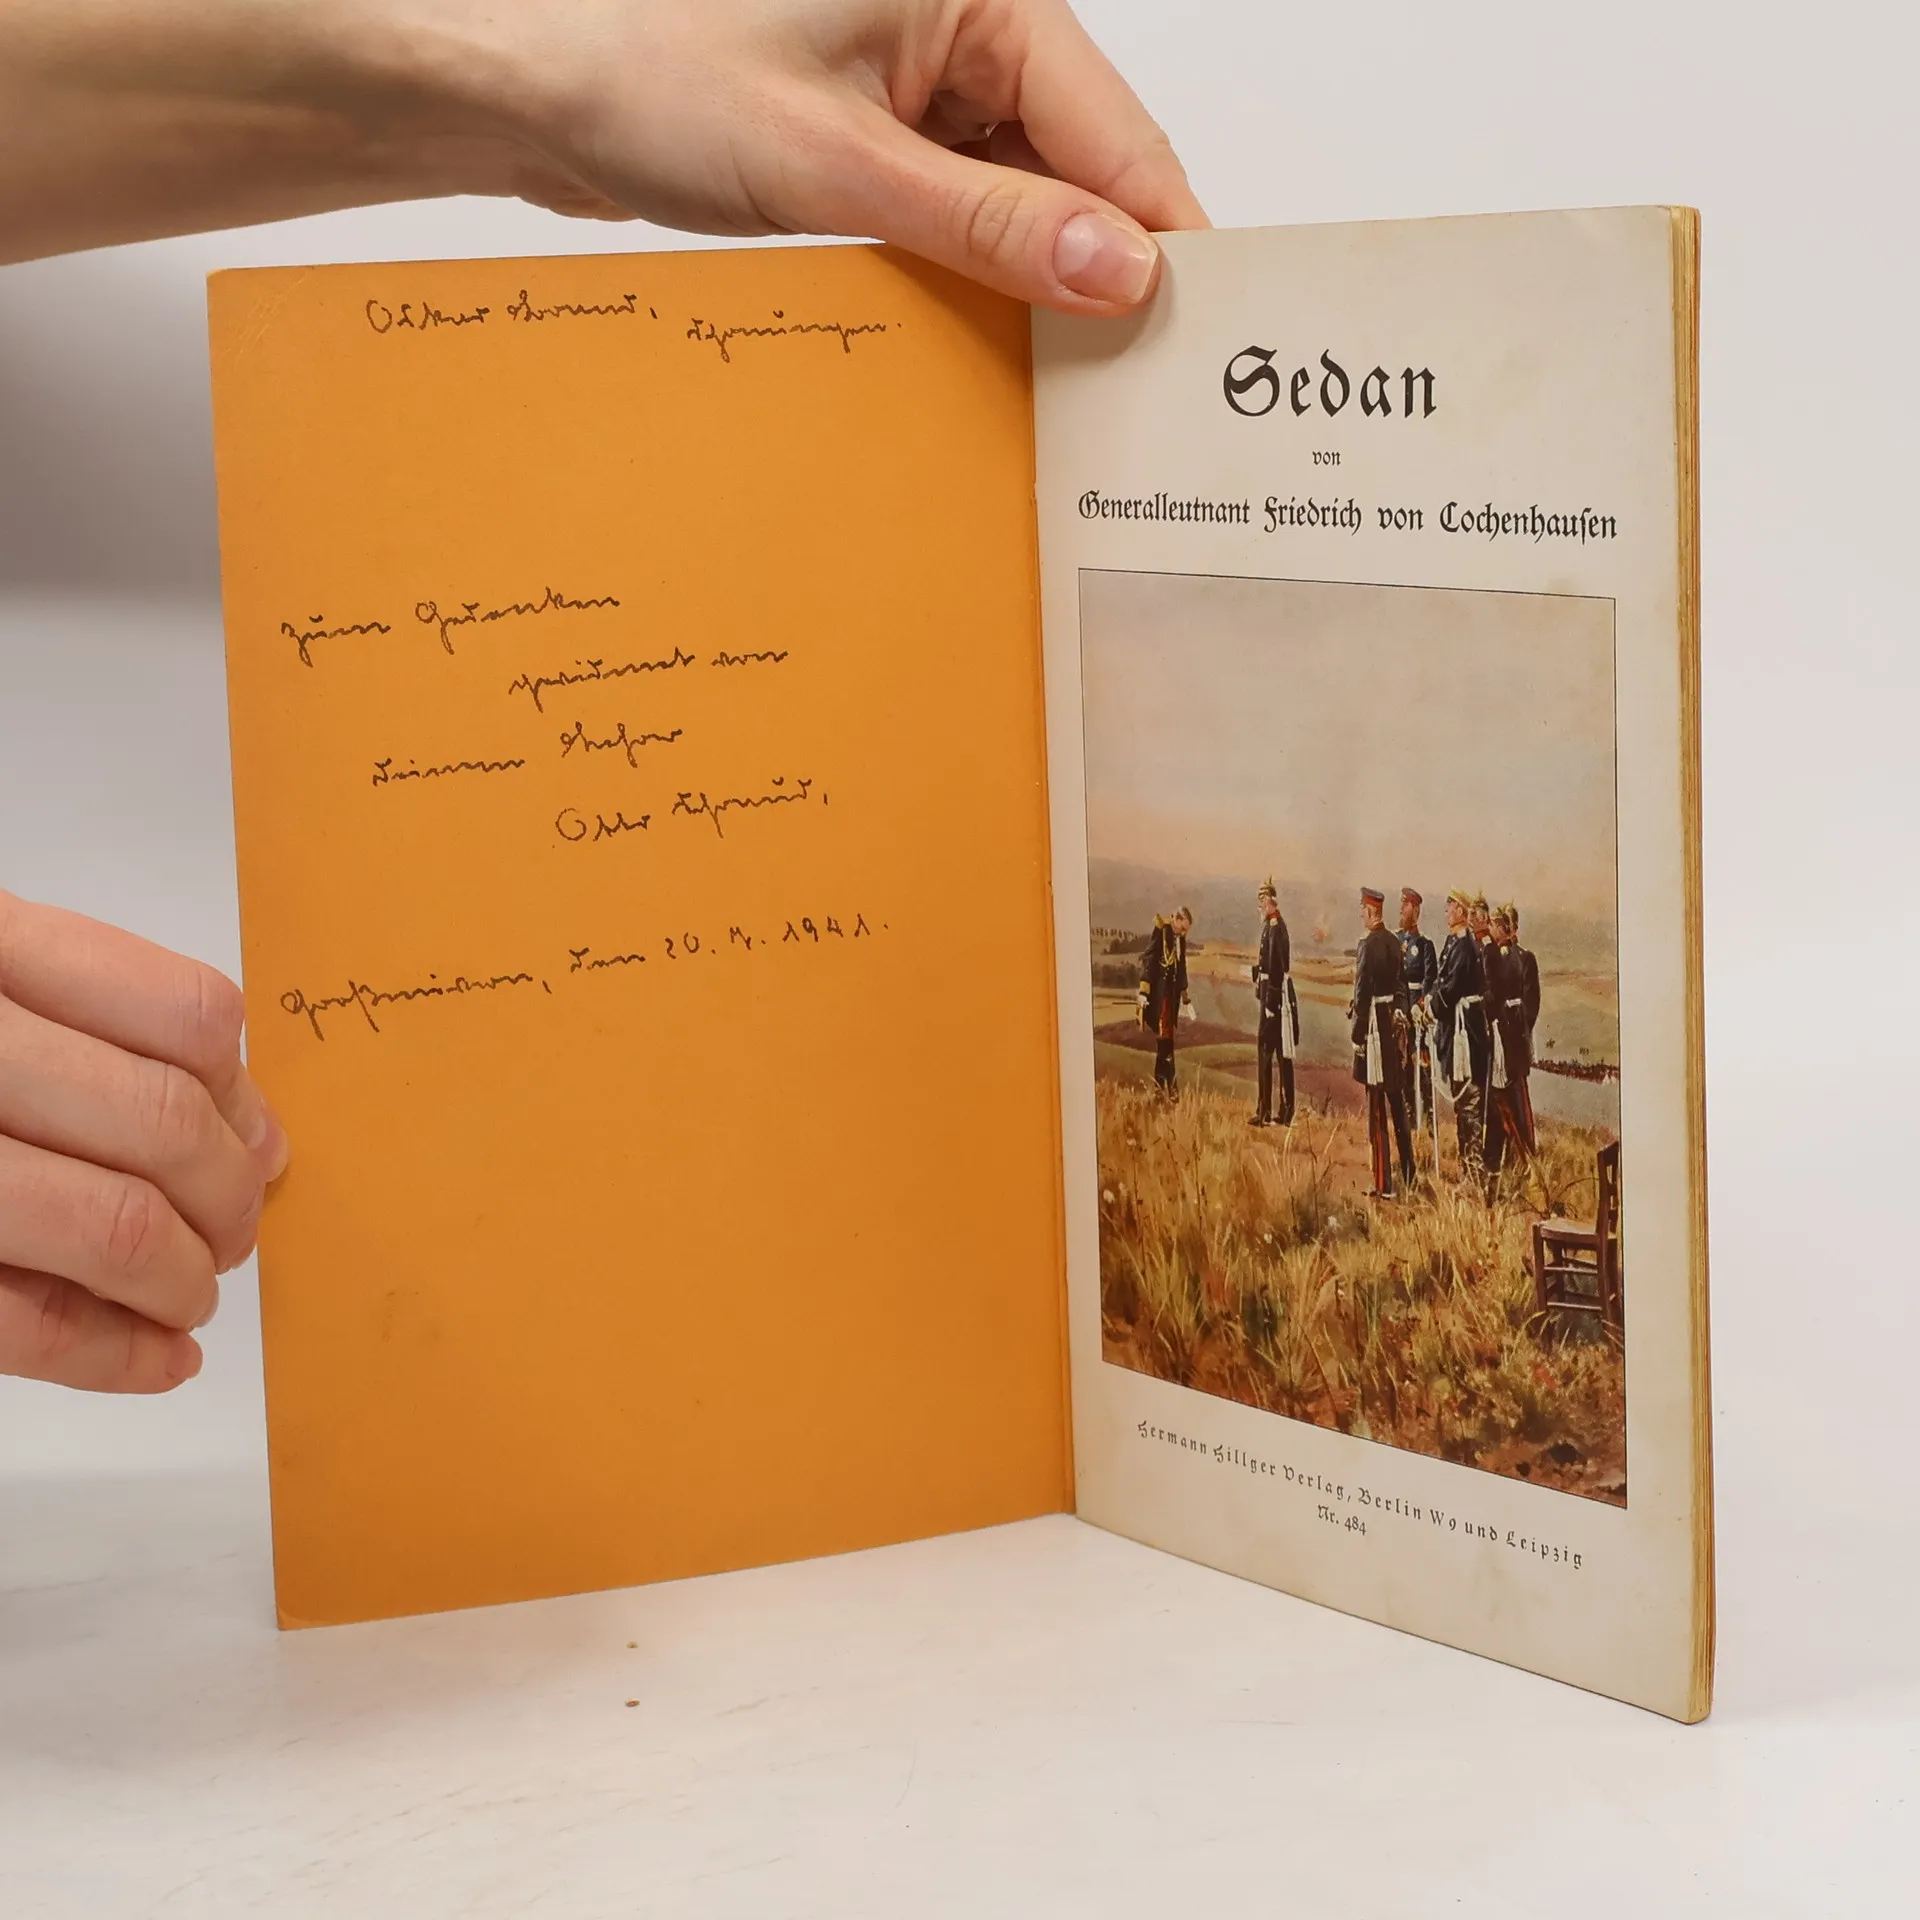 Oskar
Zum Gedenken
gewidmet von
deinem
Otto
den 20. 7. 1941.
Sedan
von
Generalleutnant Friedrich von Cochenhausen
Hermann Hillger Verlag, Berlin W9 und Leipzig
Nr. 484